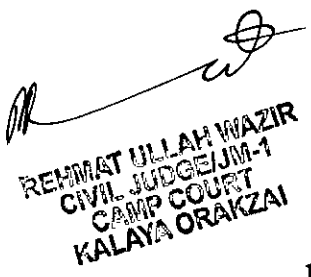 REHMAT ULLAH WAZIR
CIVIL JUDGE/JM-1
CAMP COURT
KALAYA ORAKZAI